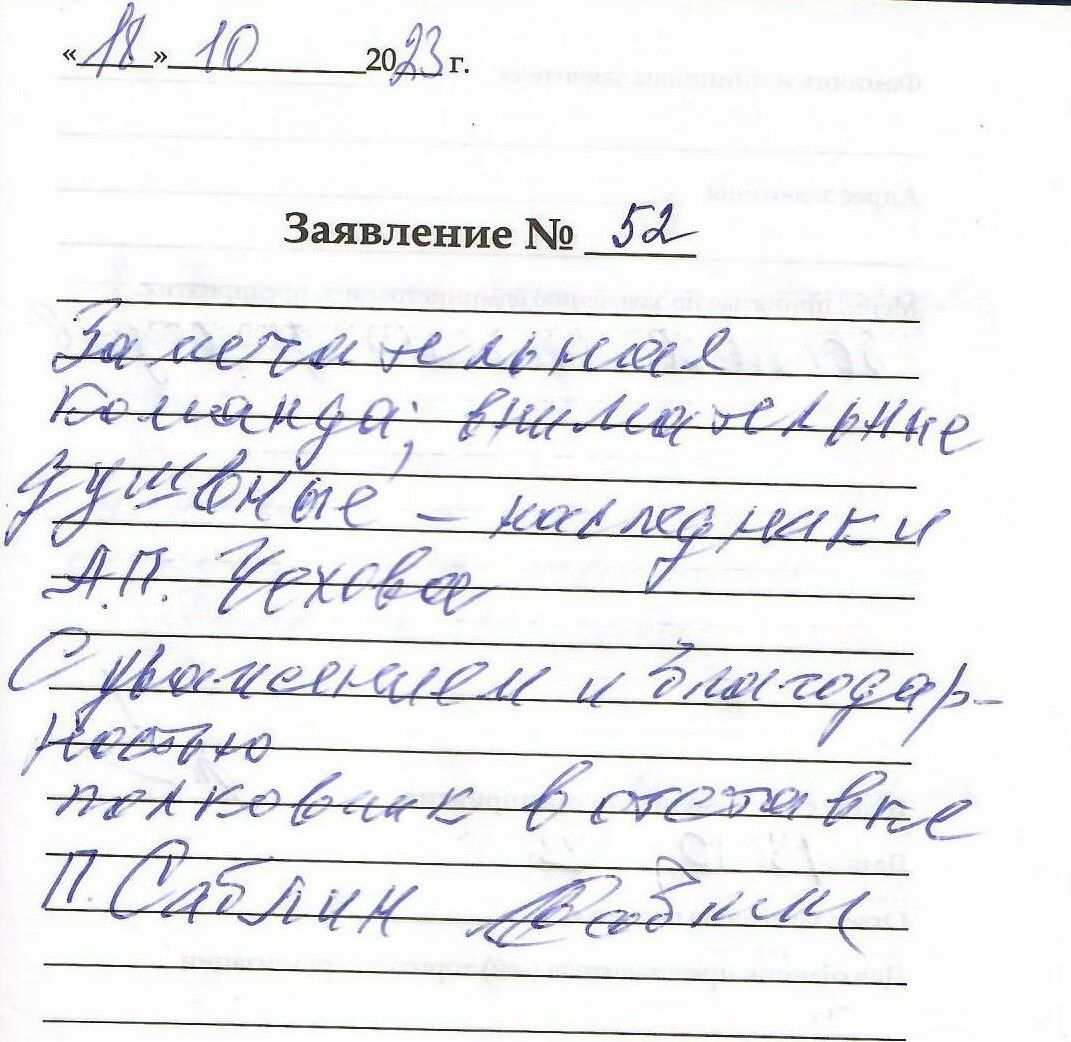 «18» 10 2023 г.
Заявление № 52
Замечательная
команда; внимательные
душевные – наследники
А.П. Чехова
С уважением и благодар-
ностью
полковник в отставке
П. Саблин